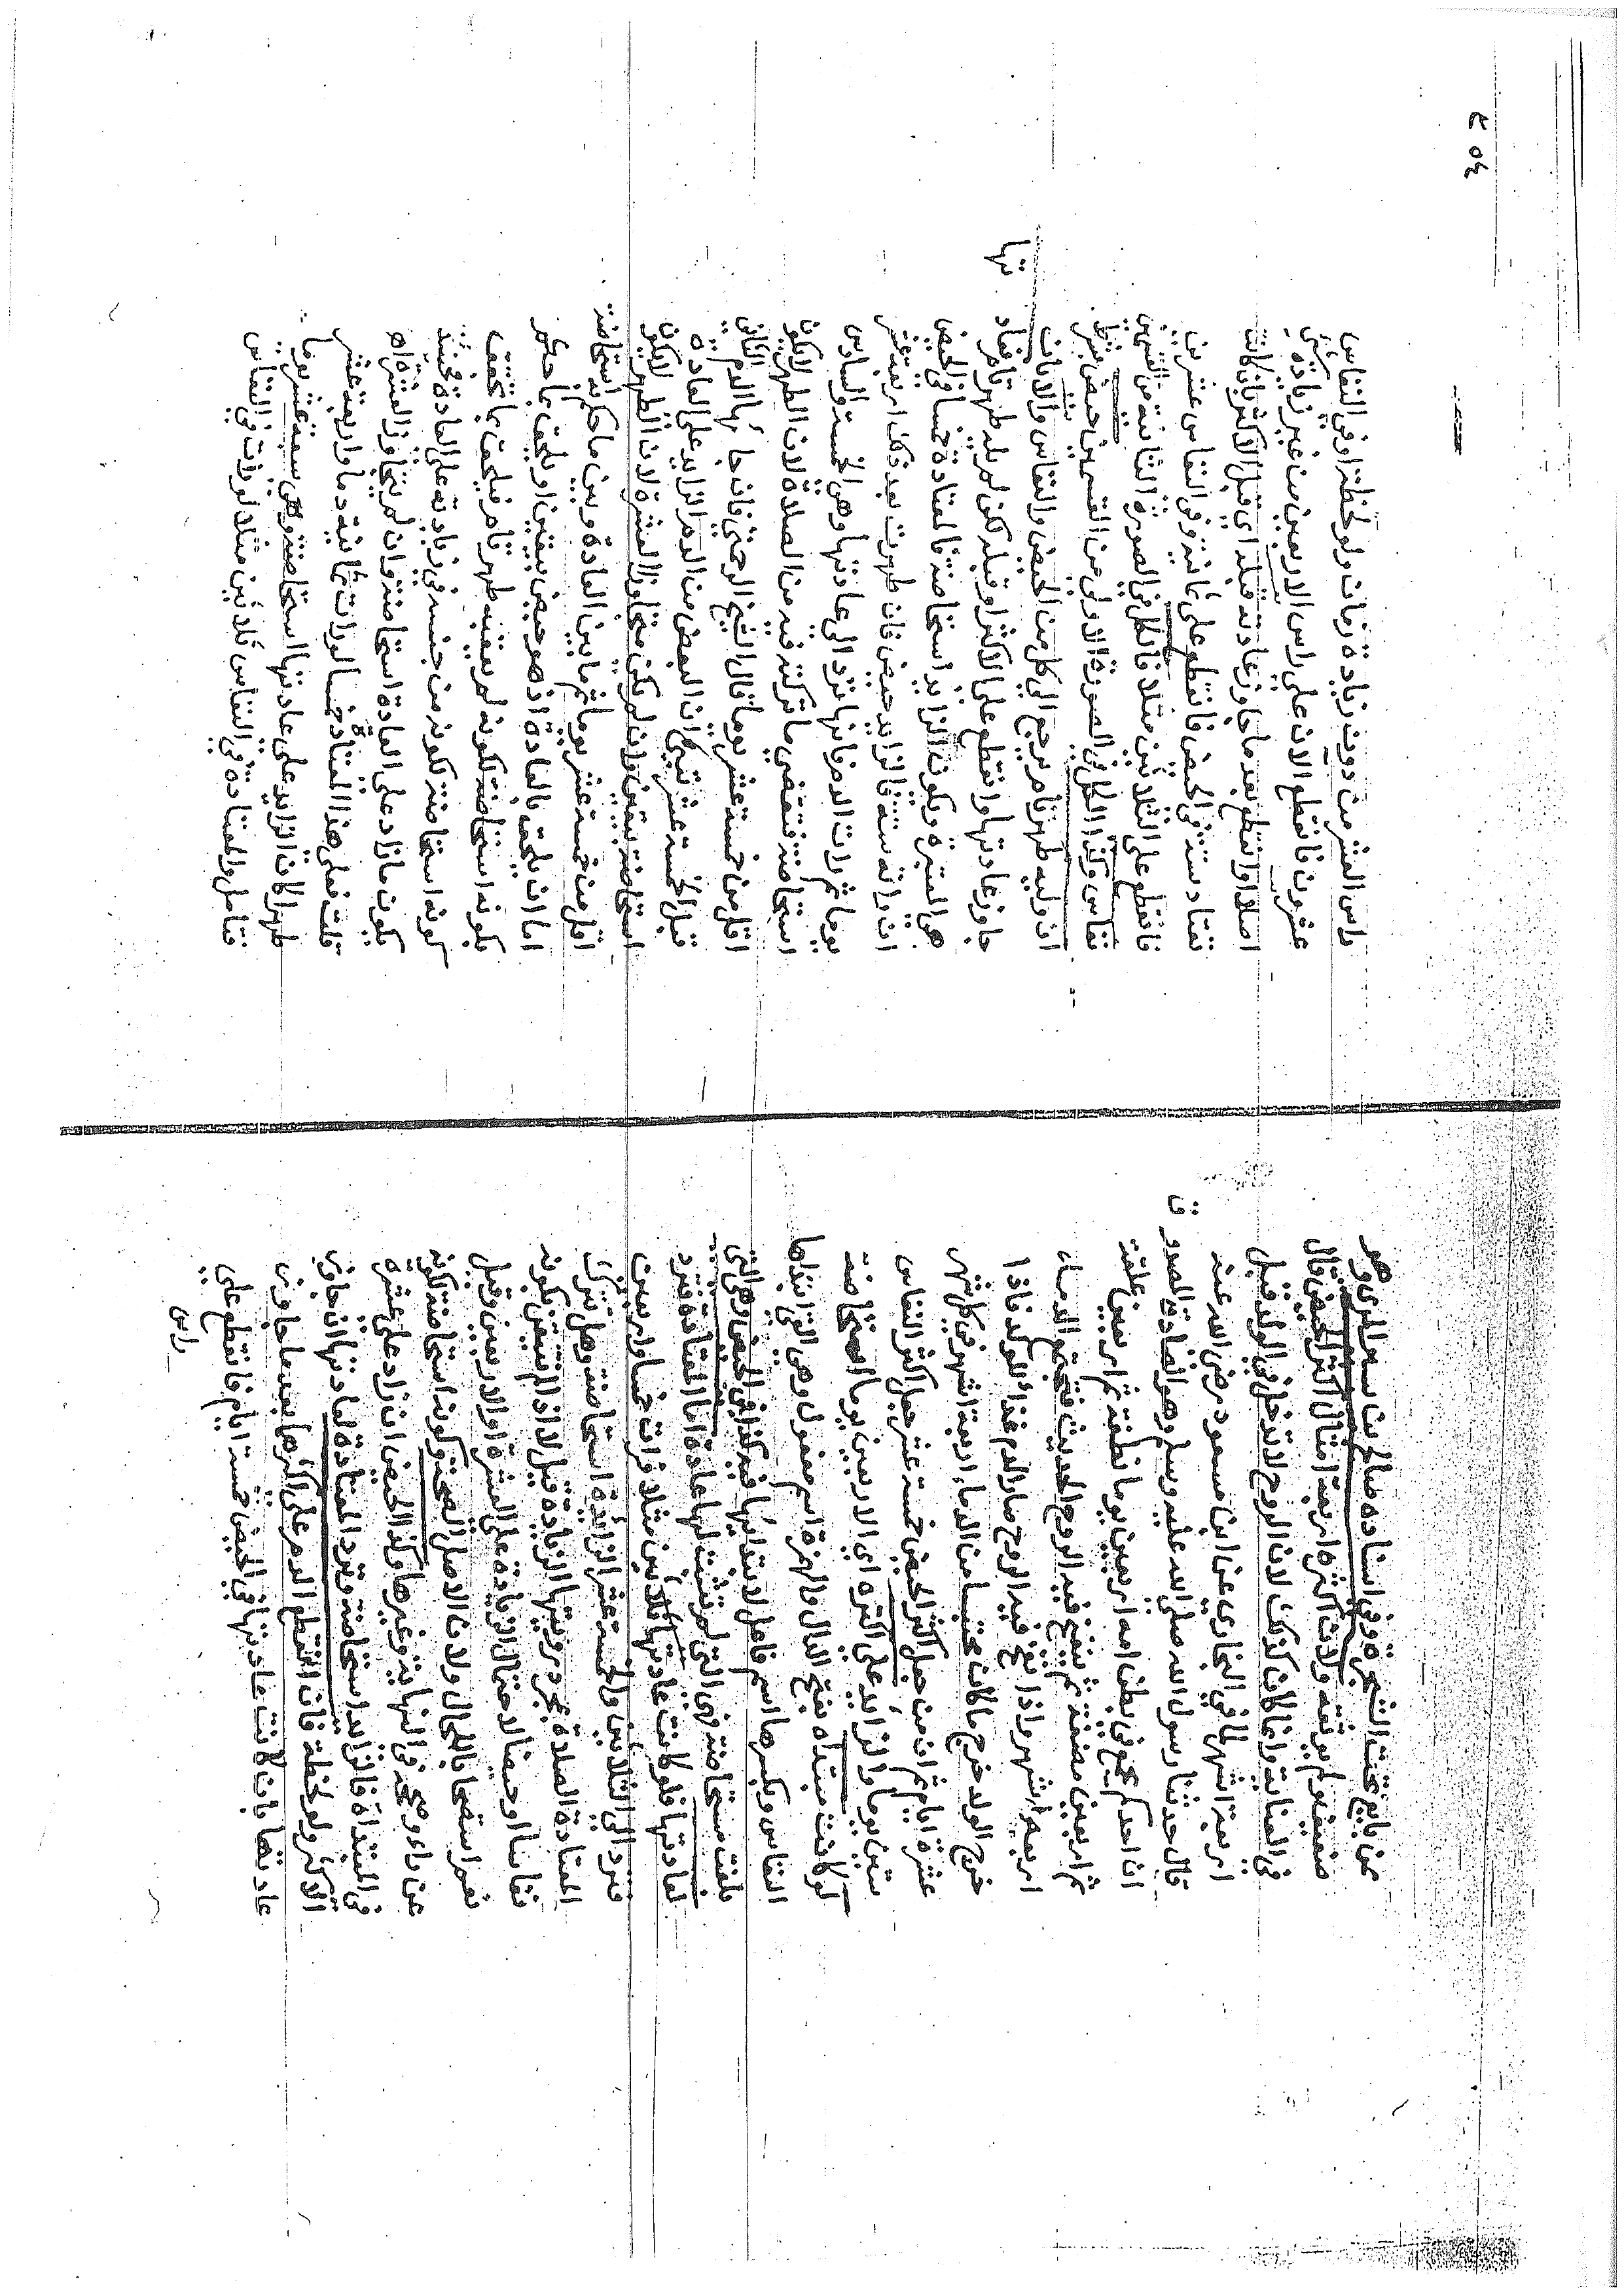 عن نافع تحت الشجرة وفي اسناده صالح بن سوار المري وهو
ضعيف ولم يوثقه وكانت اكثره اربعة امثال اكثر الحيض قال
في العناية وانما كان كذلك لان الروح لا تدخل في الولد قبل
اربعة اشهر لما في البخاري عن ابن مسعود رضي الله عنه
قال حدثنا رسول الله صلى الله عليه وسلم وهو الصادق المصدوق
ان احدكم يجمع في بطن امه اربعين يوما نطفة ثم اربعين علقة
ثم اربعين مضغة ثم ينفخ فيه الروح الحديث فتجتمع الدماء
اربعة اشهر واذا نفخ فيه الروح صار الدم غذاء للولد فاذا
خرج الولد خرج ما كان محتبسا من الدماء اربعة اشهر في كل شهر
عشرة ايام ثم ان من جعل اكثر الحيض خمسة عشر جعل اكثر النفاس
ستين يوما والزائد على اكثره اي الاربعين يوما استحاضة
لو كانت مبتداه بفتح الدال فالهمزة اسم مفعول وهي التي ابتداها
النفاس وبكسرها اسم فاعل لابتدائها فيه كذا في الحيض وهي التي
بلغت مستحاضة وهي التي لم تثبت لها عادة اما المعتادة فترد
لعادتها فلو كانت عادتها ثلاثين مثلا فرات خمسا واربعين
فترد الى الثلاثين والخمسة عشر الزايدة استحاضة وهل تترك
المعتادة الصلاة بمجرد رويتها الزيادة قيل لا اذا لم تتيقن بكونه
نفاسا او حيضا لاحتمال الزيادة على العشرة او الاربعين وقيل
نعم استصحابا للحال ولان الاصل الصحة وكونه استحاضة بكونه
عن داء وصححه في النهاية وغيرها وكذا الحيض ان زاد على عشرة
في المبتداة فالزائد استحاضة وترد المعتادة لعادتها ان جاوز
الاكثر ولو لحظة فان انقطع الدم على اكثرهما بعد ما جاوز
عادتها بان كانت عادتها في الحيض خمسة ايام فانقطع على
راس
راس العشر من دون زيادة زمان ولو لحظة او في النفاس
عشرون فانقطع الان على راس الاربعين من غير زيادة شيء
اصلا او انقطع بعد ما جاوز عادته قبله اي قبل الاكثر بان كانت
تعتاد ستة في الحيض فانقطع على ثمانية وفي النفاس عشرين
فانقطع على الثلاثين مثلا فالكل في الصورة الثانية من القسمين
نفاس وكذا الكل في الصورة الاولى من القسمين حيض بشرط
ان وليه طهر تام يرجع الى كل من الحيض والنفاس والا بان
جاوز عادتها وانقطع على الاكثر او قبله لكن لم يله طهر تام فعاد
تها
هي المعتبرة ويكون الزايد استحاضة فالمعتادة خمسا في الحيض
ان راته ستة فالزايد حيض فان طهرت بعد ذلك اربعة عشر
يوما ثم رات الدم فانها ترد الى عادتها وهي الخمسة والسادس
استحاضة فتقضي ما تركته فيه من الصلاة لان الطهر لا يكون
اقل من خمسة عشر يوما قال الشيخ الرحمتي فان جاءها الدم الثاني
قبل الخمسة عشر تبين ان البعض من الدم الزايد على العادة
استحاضة بيقين وان لم يكن متجاوز العشرة لان الطهر لا يكون
اقل من خمسة عشر يوما ثم ما بين العادة وبين ما حكم انه استحاضة
اما ان يلحق بالعادة اذ هو حيض بيقين او يلحق بما حكم
بكونه استحاضة لكونه لم يعقبه طهر تام فيلحق بما تحقق
كونه استحاضة لكونه من جنسه في زيادته على العادة فحينئذ
يكون ما زاد على العادة استحاضة وان لم يتجاوز العشرة اه
قلت فعلى هذا المعتادة خمسا لو رات ثمانية دما واربعة عشر
طهرا كان الزايد على عادتها استحاضة وهي سبعة عشر يوما
فتامل والمعتادة في النفاس ثلاثين مثلا لو رات في النفاس